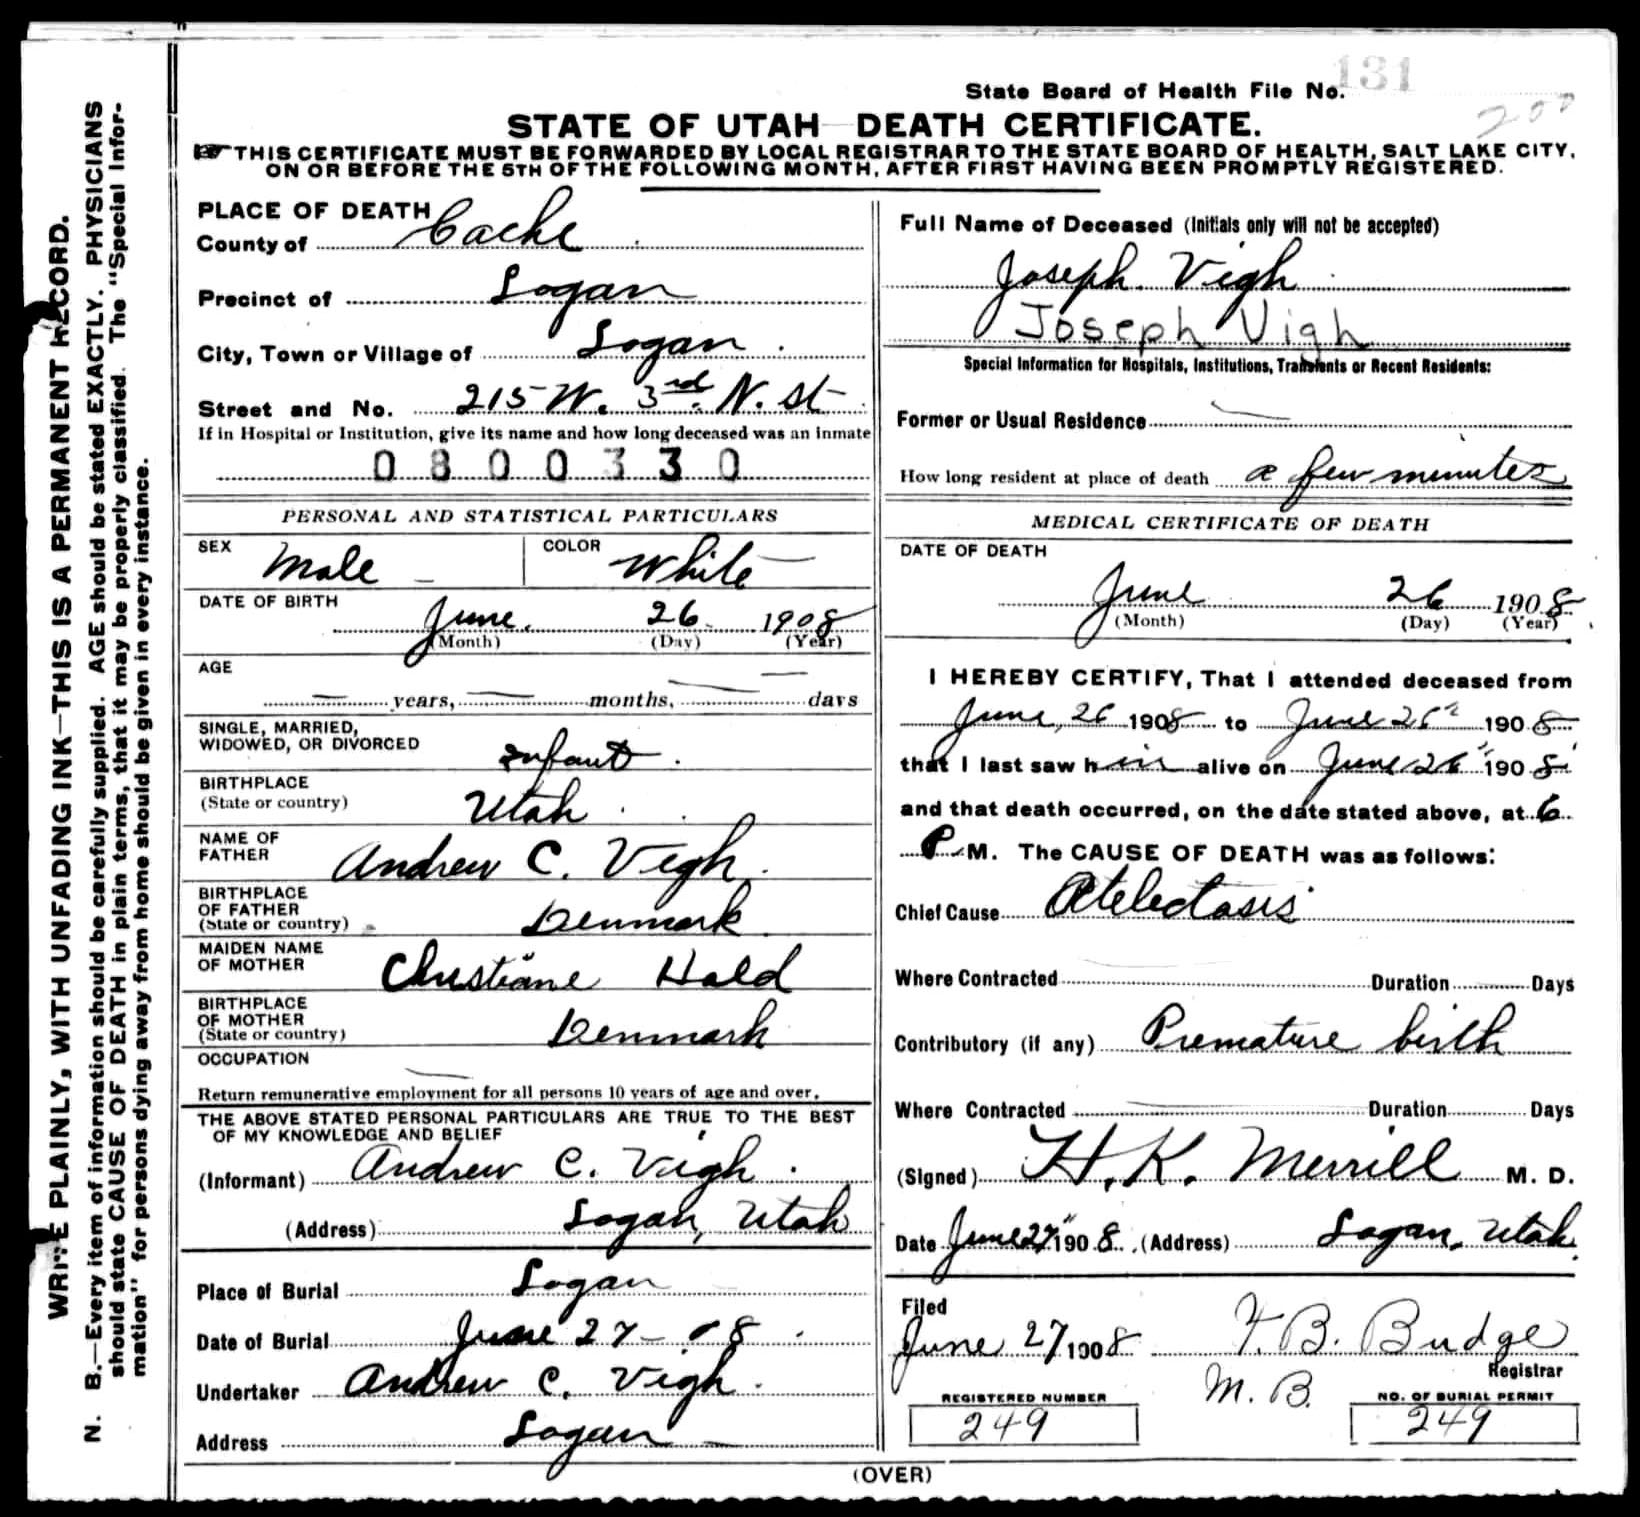 State Board of Health File No. 131
200
STATE OF UTAH—DEATH CERTIFICATE.
THIS CERTIFICATE MUST BE FORWARDED BY LOCAL REGISTRAR TO THE STATE BOARD OF HEALTH, SALT LAKE CITY,
ON OR BEFORE THE 5TH OF THE FOLLOWING MONTH, AFTER FIRST HAVING BEEN PROMPTLY REGISTERED.
WRITE PLAINLY, WITH UNFADING INK—THIS IS A PERMANENT RECORD.
N. B.—Every item of information should be carefully supplied. AGE should be stated EXACTLY. PHYSICIANS
should state CAUSE OF DEATH in plain terms, that it may be properly classified. The "Special Infor-
mation" for persons dying away from home should be given in every instance.
PLACE OF DEATH
County of Cache
Precinct of Logan
City, Town or Village of Logan
Street and No. 215 W. 3rd. N. St
If in Hospital or Institution, give its name and how long deceased was an inmate
0800330
PERSONAL AND STATISTICAL PARTICULARS
SEX Male
COLOR White
DATE OF BIRTH
June 26 1908
(Month) (Day) (Year)
AGE
— years, — months, — days
SINGLE, MARRIED,
WIDOWED, OR DIVORCED infant
BIRTHPLACE
(State or country) Utah
NAME OF
FATHER Andrew C. Vigh
BIRTHPLACE
OF FATHER
(State or country) Denmark
MAIDEN NAME
OF MOTHER Christiane Hald
BIRTHPLACE
OF MOTHER
(State or country) Denmark
OCCUPATION
Return remunerative employment for all persons 10 years of age and over.
THE ABOVE STATED PERSONAL PARTICULARS ARE TRUE TO THE BEST
OF MY KNOWLEDGE AND BELIEF
(Informant) Andrew C. Vigh
(Address) Logan, Utah
Place of Burial Logan
Date of Burial June 27 - 08
Undertaker Andrew C. Vigh
Address Logan
Full Name of Deceased (Initials only will not be accepted)
Joseph Vigh
Joseph Vigh
Special Information for Hospitals, Institutions, Transients or Recent Residents:
Former or Usual Residence —
How long resident at place of death a few minutes
MEDICAL CERTIFICATE OF DEATH
DATE OF DEATH
June 26 1908
(Month) (Day) (Year)
I HEREBY CERTIFY, That I attended deceased from
June, 26 1908 to June 26" 1908
that I last saw him alive on June 26" 1908
and that death occurred, on the date stated above, at 6
P M. The CAUSE OF DEATH was as follows:
Chief Cause Atelectasis
Where Contracted Duration Days
Contributory (if any) Premature birth
Where Contracted Duration Days
(Signed) H. K. Merrill M. D.
Date June 27" 1908. (Address) Logan, Utah.
Filed
June 27 1908 F. B. Budge
Registrar
M. B.
REGISTERED NUMBER
249
NO. OF BURIAL PERMIT
249
(OVER)